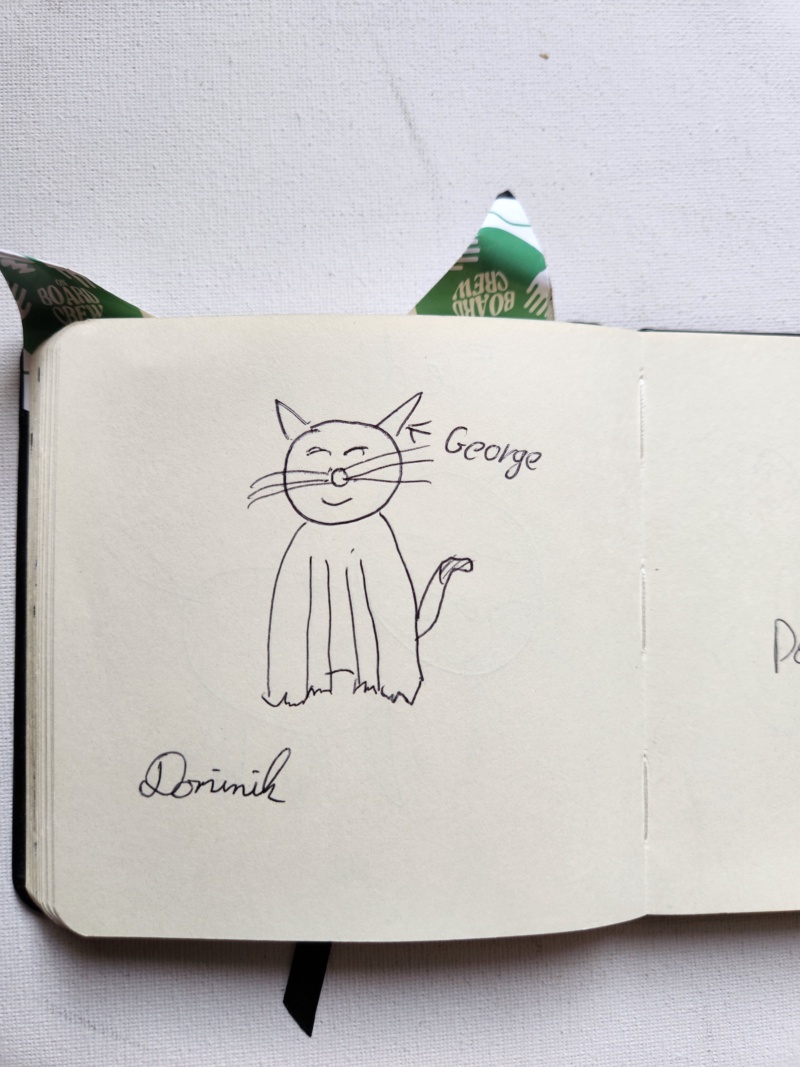 BOARD
CREW
BOARD
CREW
George
Do
Dominik